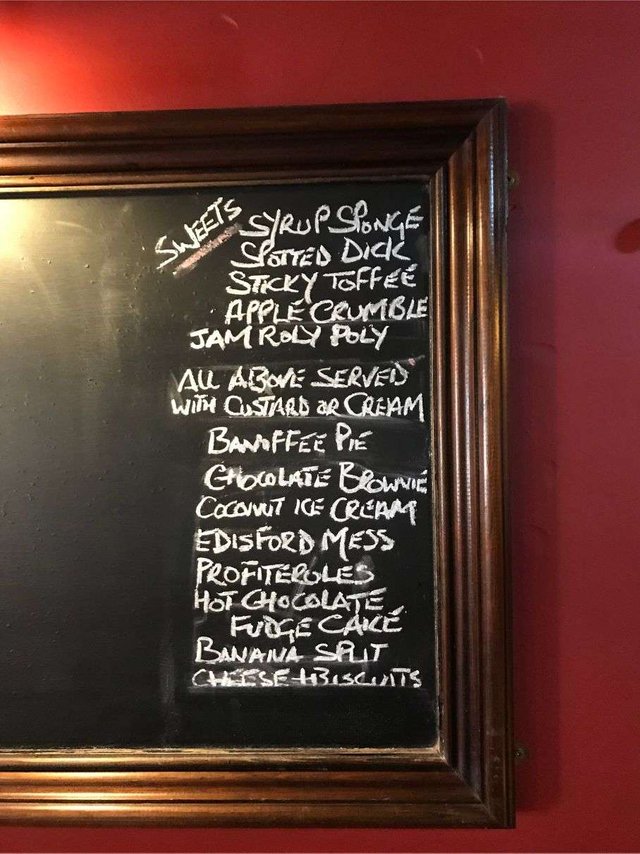 SWEETS
SYRUP SPONGE
SPOTTED DICK
STICKY TOFFEE
APPLE CRUMBLE
JAM ROLY POLY
ALL ABOVE SERVED
WITH CUSTARD OR CREAM
BANOFFEE PIE
CHOCOLATE BROWNIE
COCONUT ICE CREAM
EDISFORD MESS
PROFITEROLES
HOT CHOCOLATE
FUDGE CAKE
BANANA SPLIT
CHEESE + BISCUITS